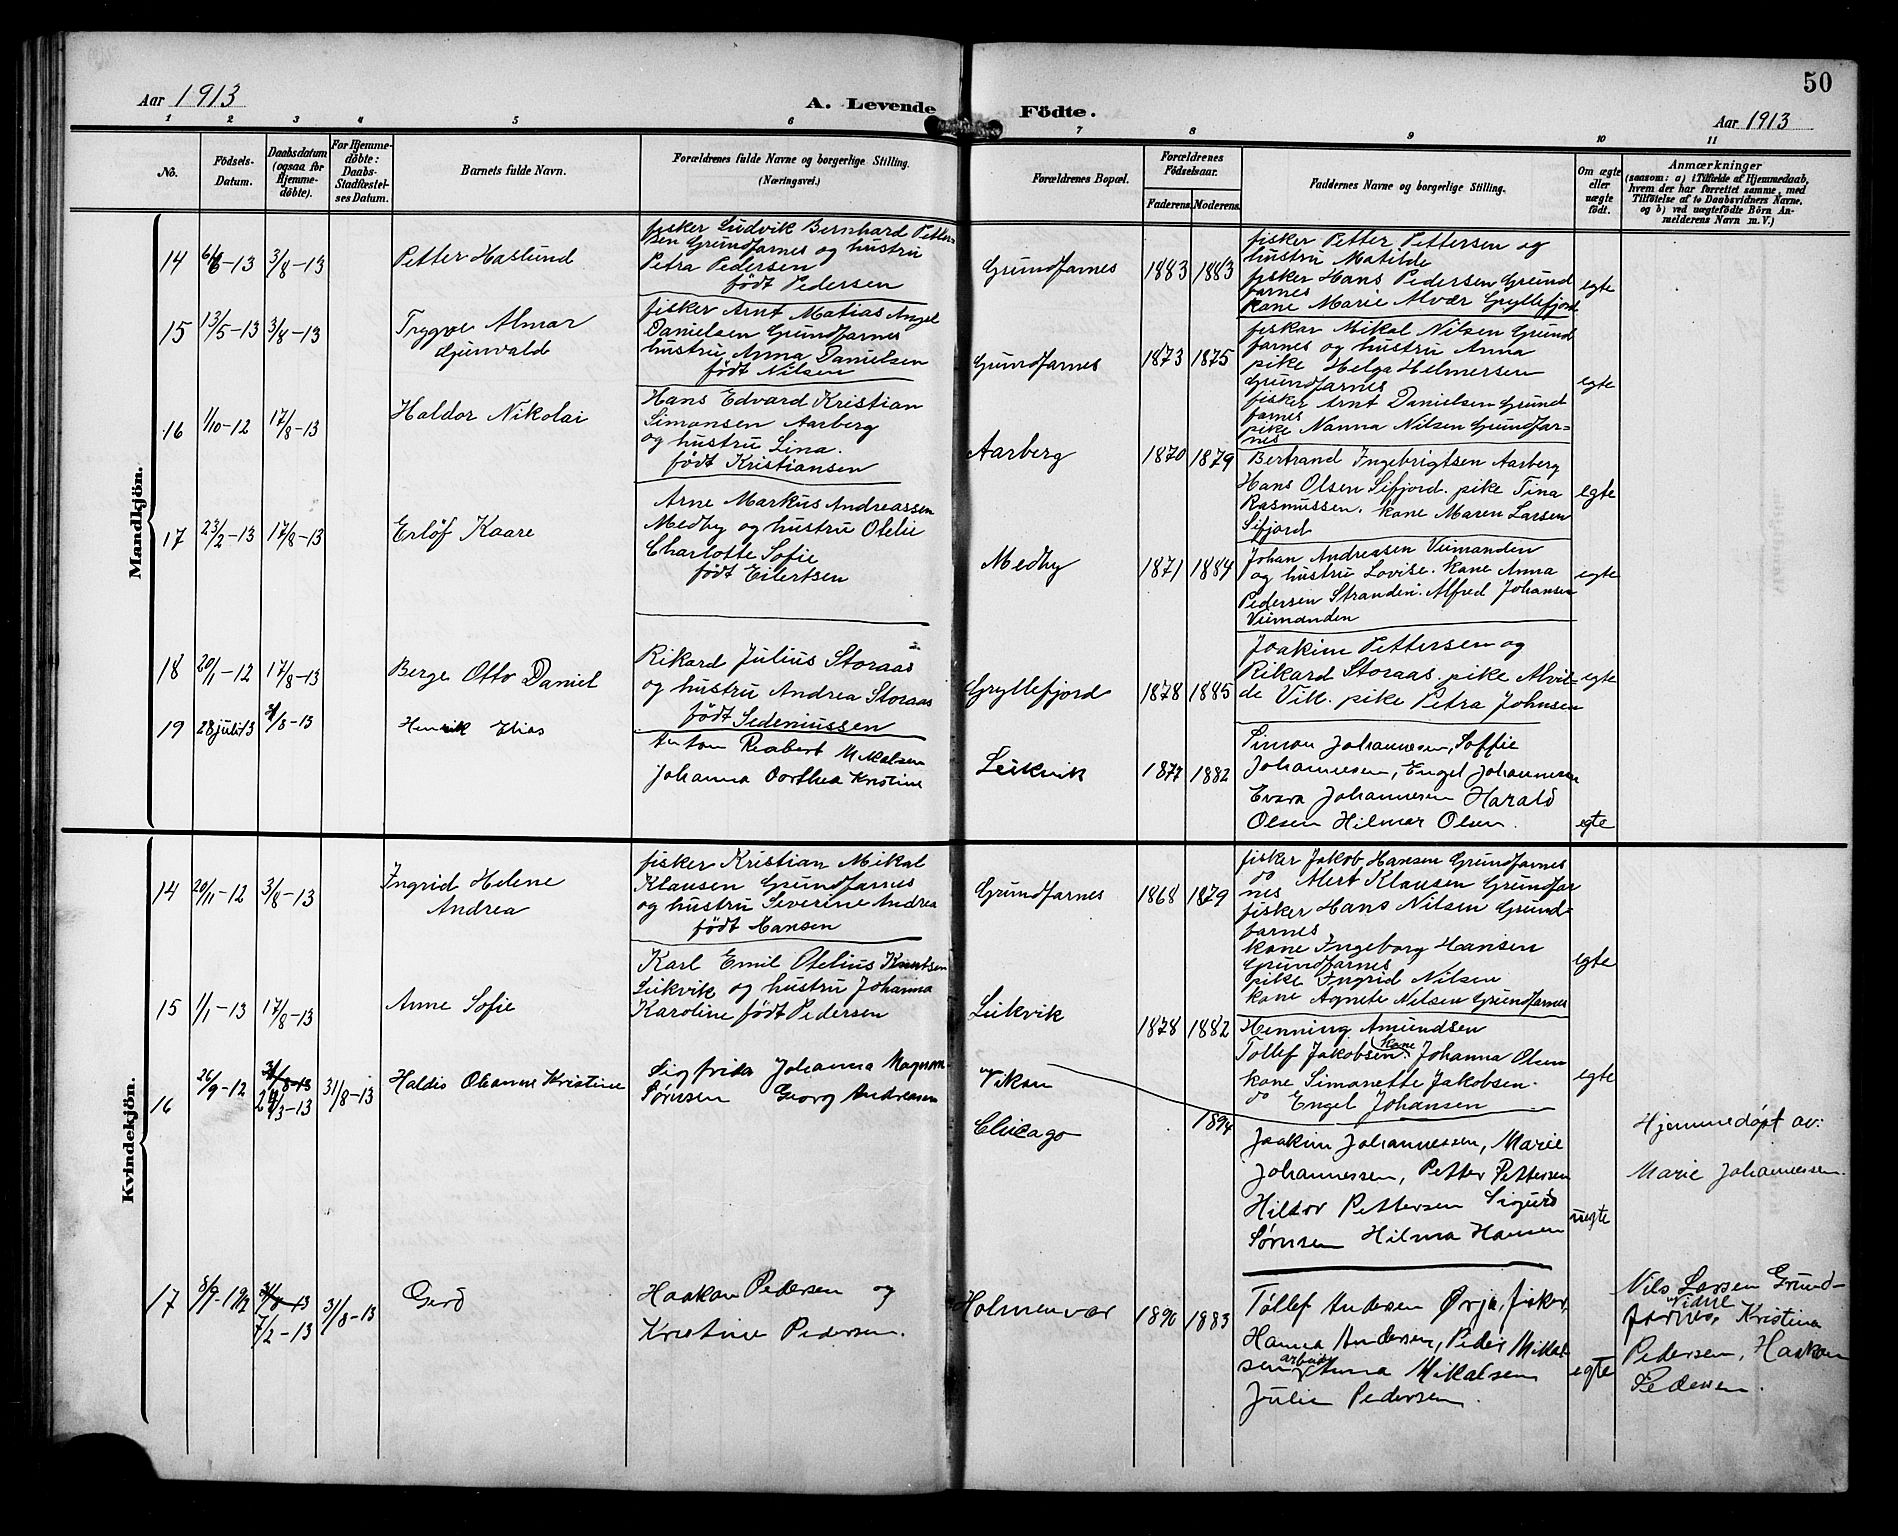 50
Aar 1913
A. Levende Födte.
Aar 1913
1 2 3 4 5 6 7 8 9 10 11
No.
Födsels-Datum.
Daabsdatum (ogsaa for Hjemme-döbte).
For Hjemme-döbte: Daabs-Stadfæstel-ses Datum.
Barnets fulde Navn.
Forældrenes fulde Navne og borgerlige Stilling.
(Næringsvei.)
Forældrenes Bopæl.
Forældrenes Födselsaar.
Faderens. Moderens.
Faddernes Navne og borgerlige Stilling.
Om ægte eller uægte födt.
Anmærkninger
(saasom: a) i Tilfælde af Hjemmedaab,
hvem der har forrettet samme, med
Tilföielse af to Daabsvidners Navne,
og b) ved uægtefödte Börn An-
melderens Navn m. V.)
Mandkjön.
14 6/6-13 3/8-13
Petter Haslund
fisker Ludvik Bernhard Petter-
sen Grundfarnes og hustru
Petra Pedersen
født Pedersen
Grundfarnes 1883 1883
fisker Petter Pettersen og
hustru Matilde
fisker Hans Pedersen Grund
farnes
kone Marie Alvær Gryllefjord
egte
15 13/5-13 3/8-13
Trygve Almar
Gunvald
fisker Arnt Matias Angel
Danielsen Grundfarnes
hustru Anna Danielsen
født Nilsen
Grundfarnes 1873 1875
fisker Mikal Nilsen Grund
farnes og hustru Anna
pike Helga Helmersen
Grundfarnes
fisker Arnt Danielsen Grund
farnes
pike Nanna Nilsen Grundfar-
nes
egte
16 1/10-12 17/8-13
Haldor Nikolai
Hans Edvard Kristian
Simonsen Aarberg
og hustru Lina.
født Kristiansen
Aarberg 1870 1879
Bertrand Ingebrigtsen Aarberg
Hans Olsen Sifjord. pike Tina
Rasmussen. kone Maren Larsen
Sifjord
egte
17 23/2-13 17/8-13
Erlöf Kaare
Arne Markus Andreassen
Medby og hustru Otelie
Charlotte Sofie
født Eilertsen
Medby 1871 1884
Johan Andreasen Veimanden
og hustru Lovise. kone Anna
Pedersen Stranden. Alfred Johansen
Veimanden
egte
18 20/1-12 17/8-13
Berge Otto Daniel
Rikard Julius Storaas
og hustru Andrea Storaas
født Sedeniussen
Gryllefjord 1878 1885
Joakim Pettersen og
Rikard Storaas. pike Alvil-
de Vill. pike Petra Johnsen
egte
19 28 juli 13 31/8-13
Henrik Elias
Anton Reabert Mikalsen
Johanna Dorthea Kristine
Leikvik 1877 1882
Simon Johannesen, Soffie
Johannesen, Engel Johannesen
Evara Johannesen Harald
Olsen Hilmar Olsen.
egte
Kvindekjön.
14 20/11-12 3/8-13
Ingrid Helene
Andrea
fisker Kristian Mikal
Klausen Grundfarnes
og hustru Severine Andrea
født Hansen
Grundfarnes 1868 1879
fisker Jakob Hansen Grundfarnes
do Alert Klausen Grundfar
nes
fisker Hans Nilsen Grund-
farnes
kone Ingeborg Hansen
Grundfarnes
pike Ingrid Nilsen
kone Agnete Nilsen Grundfarnes
egte
15 1/1-13 17/8-13
Anne Sofie
Karl Emil Otelius Knutsen
Leikvik og hustru Johanna
Karoline født Pedersen
Leikvik 1878 1882
Henning Amundsen
Tollef Jakobsen. kone Johanna Olsen
kone Simonette Jakobsen.
do Engel Johansen
egte
16 26/9-12 31/8-13 24/3-13 31/8-13
Haldis Ohanne Kristine
Sigfrida Johanna Magnom
Sørnsen Georg Andreasen
Vikan
Chicago
1894
Joakim Johannessen, Marie
Johannessen, Petter Pettersen
Hildor Pettersen Sigurd
Sørnsen Hilma Hansen
uegte
Hjemmedøpt av:
Marie Johannessen.
17 8/9-1912 31/8-13 7/2-13 31/8-13
Gerd
Haakon Pedersen og
Kristine Pedersen.
Holmenvær 1890 1883
Tollef Andersen Ørja, fisker,
Hanna Andersen, Peder Mikal-
sen arbeider Anna Mikalsen
Julie Pedersen.
egte
Nils Larsen Grund-
farnes, Vidne Kristina
Pedersen, Haakon
Pedersen.